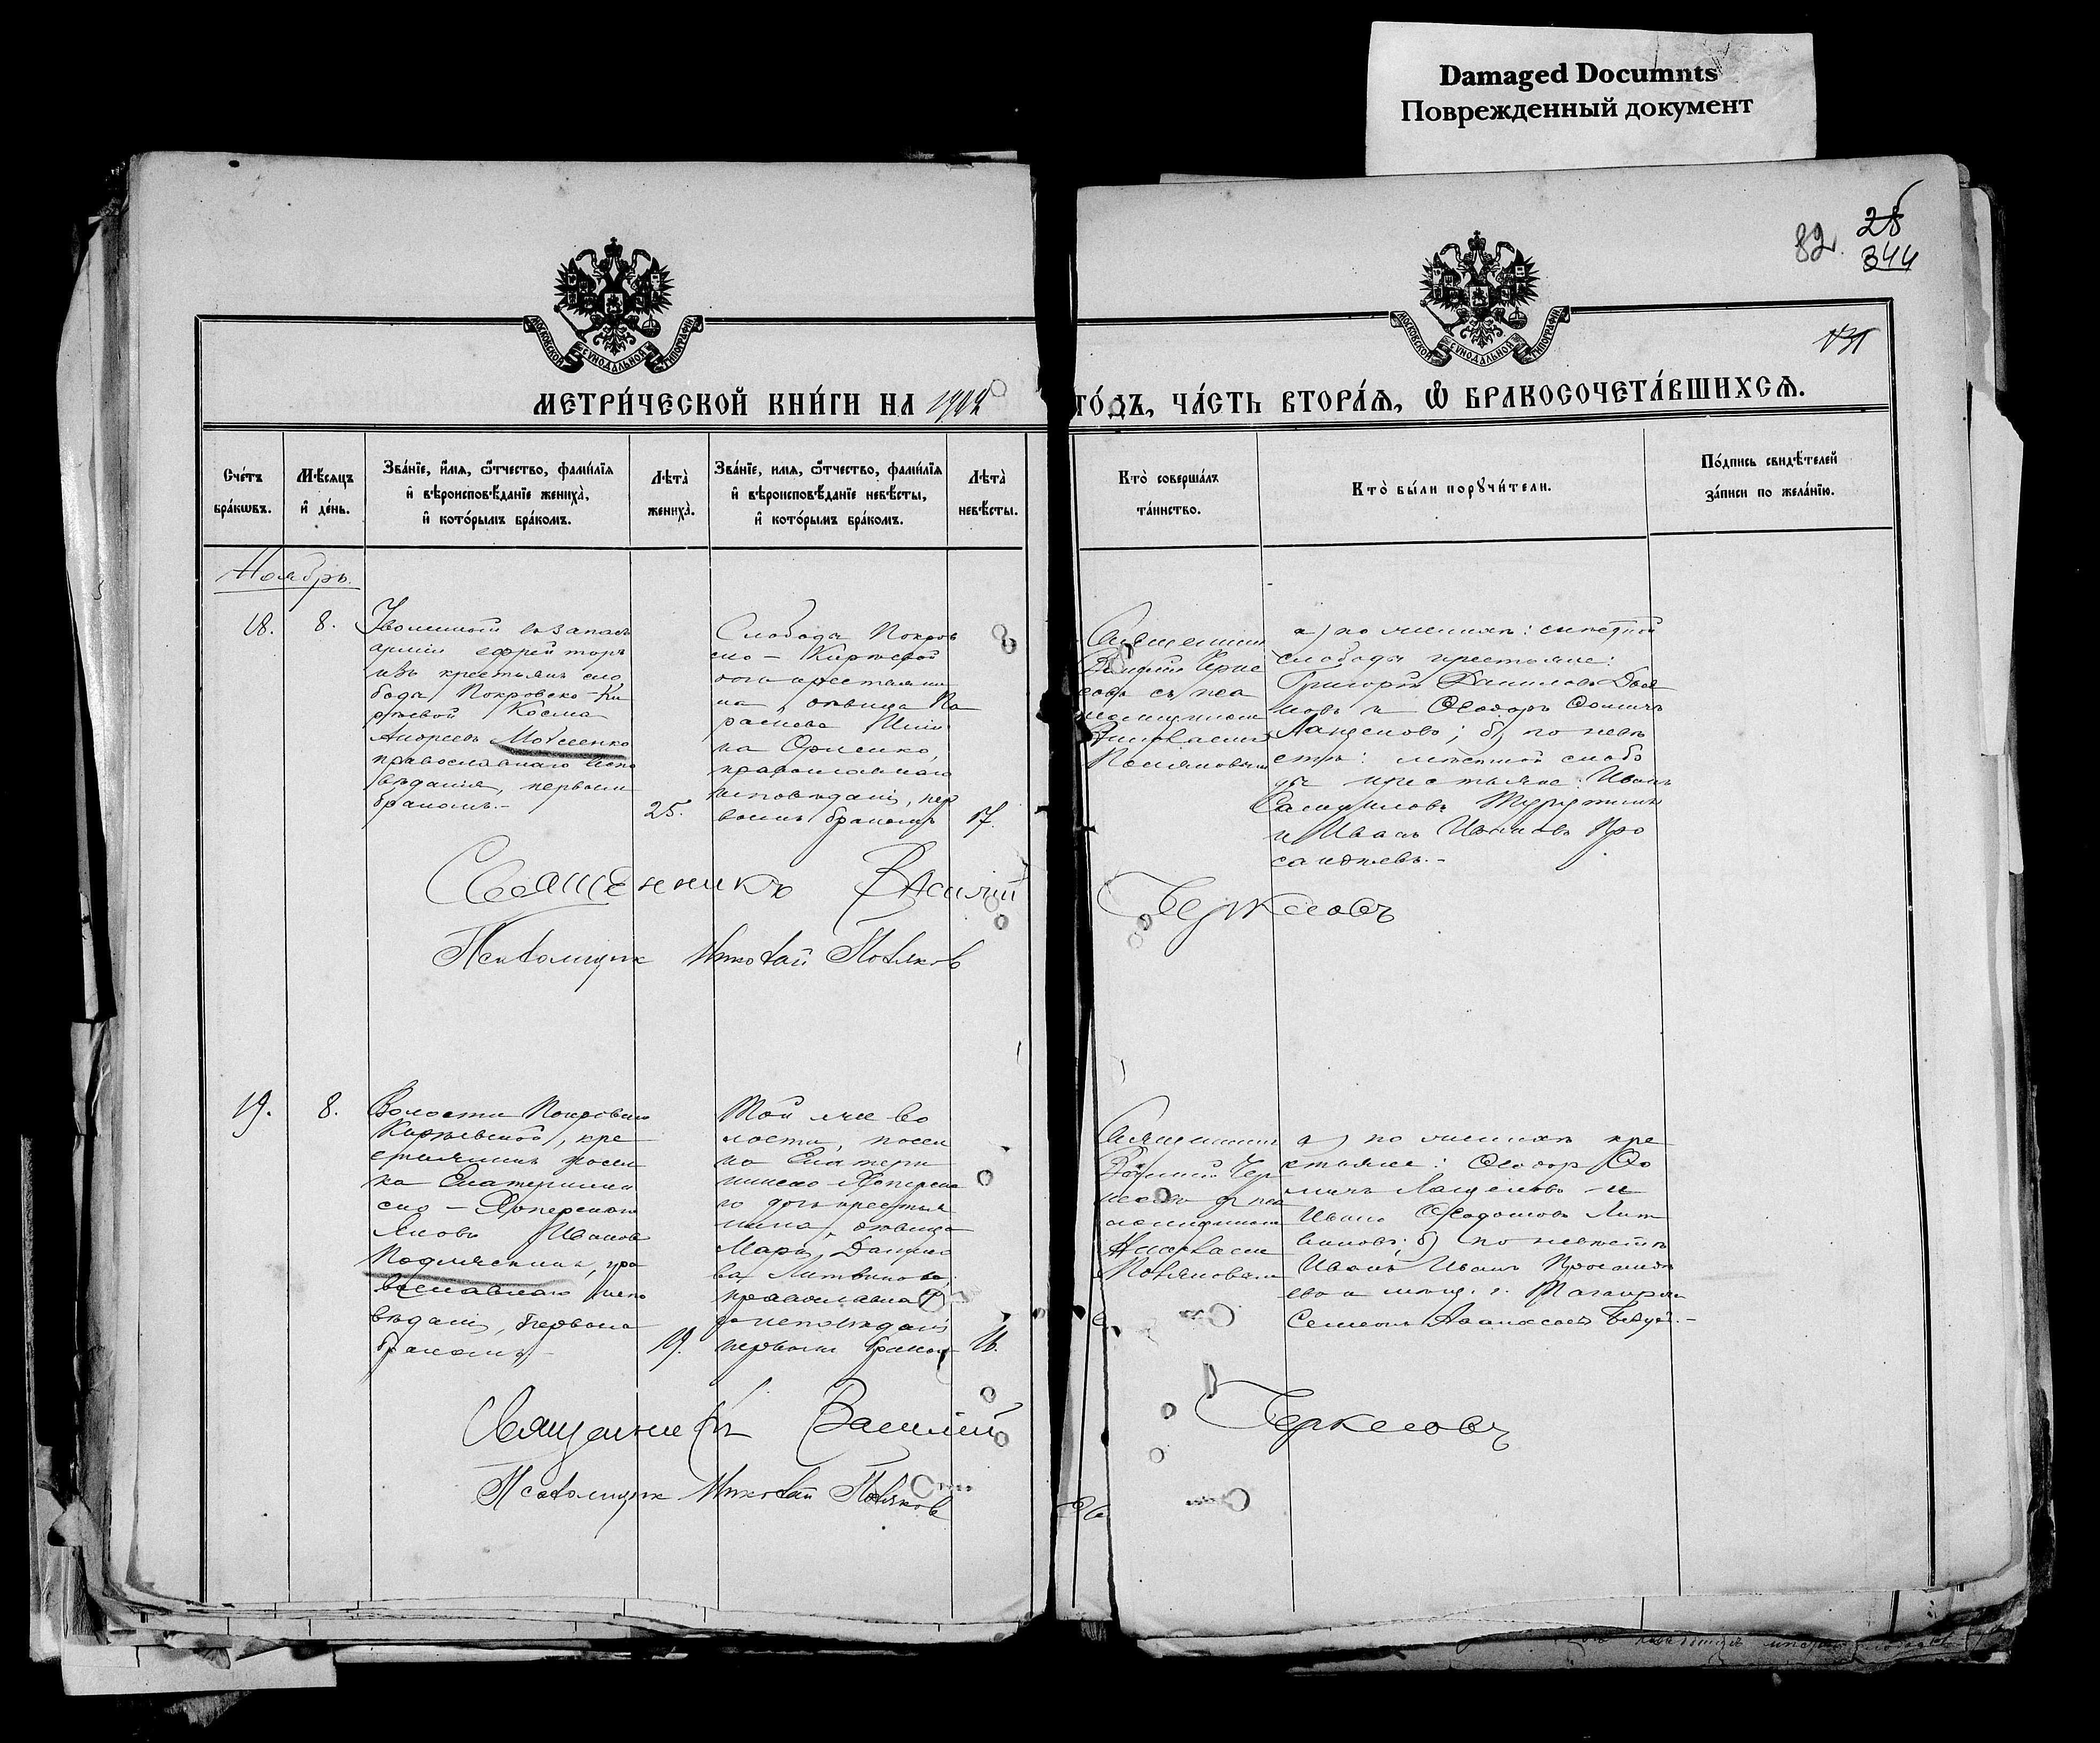 Damaged Documnts
Поврежденный документ
82.
28
344
131
МОСКОВСКОЙ СѴНОДАЛЬНОЙ ТИПОГРАФІИ
МОСКОВСКОЙ СѴНОДАЛЬНОЙ ТИПОГРАФІИ
МЕТРИ́ЧЕСКОЙ КНИ́ГИ НА 1902 ГО́ДЪ, ЧА́СТЬ ВТОРА́Ѧ, Ѽ БРАКОСОЧЕТА́ВШИХСѦ.
Сче́тъ
бра́кѡвъ.
Мѣ́сѧцъ
и҆ де́нь.
Зва́нїе, и҆́мѧ, ѻ҆́тчество, фами́лїѧ
и҆ вѣроисповѣ́данїе жениха̀,
и҆ кото́рымъ бра́комъ.
Лѣта̀
жениха̀.
Зва́нїе, имѧ, ѻ҆́тчество, фами́лїѧ
и҆ вѣроисповѣ́данїе невѣ́сты,
и҆ кото́рымъ бра́комъ.
Лѣта̀
невѣ́сты.
Кто̀ соверша́лъ
та́инство.
Кто̀ бы́ли порꙋчи́тели.
По́дпись свидѣ́телей
за́писи по жела́нїю.
Ноябрь.
18.
8.
Уволенный въ запасъ
арміи ефрейторъ
изъ крестьянъ сло
боды Покровско-Ки
рѣевой Косма
Андреевъ Мотсенко
православнаго испо
вѣданія, первымъ
бракомъ.-
25.
Слободы Покров
ско-Кирѣевой
дочь крестьяни
на, дѣвица Па
раскева
православнаго
исповѣданія, пер
вымъ бракомъ
17.
Священникъ
Василій Черке
совъ съ пса
ломщикомъ
Николаемъ
Поляковымъ
а) по женихѣ: сказанной
слободы крестьяне:
Григорій Даниловъ
и Ѳеодоръ Ѳомичъ
Лащеновъ; б) по невѣ
стѣ: сказанной слобо
ды крестьяне: Иванъ
и Иванъ Ивановъ Про
Священникъ Василій Черкесовъ
Псаломщик Николай Поляков
19.
8.
Волости Покровско
Кирѣевской, кре
стьянинъ посел
ка Екатеринин
ско-Хоперскаго
Яковъ Ивановъ
православнаго испо
вѣданія, первымъ
бракомъ.-
19.
Той же во
лости, посел
ка Екатери
нинско-Хоперска
го дочь крестья
нина, дѣвица
Марія Данило
ва Литвинова
православна
го исповѣданія
первымъ бракомъ
16.
Священникъ
Василій Чер
кесовъ съ пса
ломщикомъ
Николаемъ
Поляковымъ
а) по женихѣ кре
стьяне: Ѳеодоръ Ѳо
мичъ Лащеновъ и
Иванъ Лит
виновъ; б) по невѣстѣ
Иванъ Иванъ
и мѣщ. г. Таганрога
Семенъ Аѳанасьевъ
Священникъ Василій Черкесовъ
Псаломщик Николай Поляков